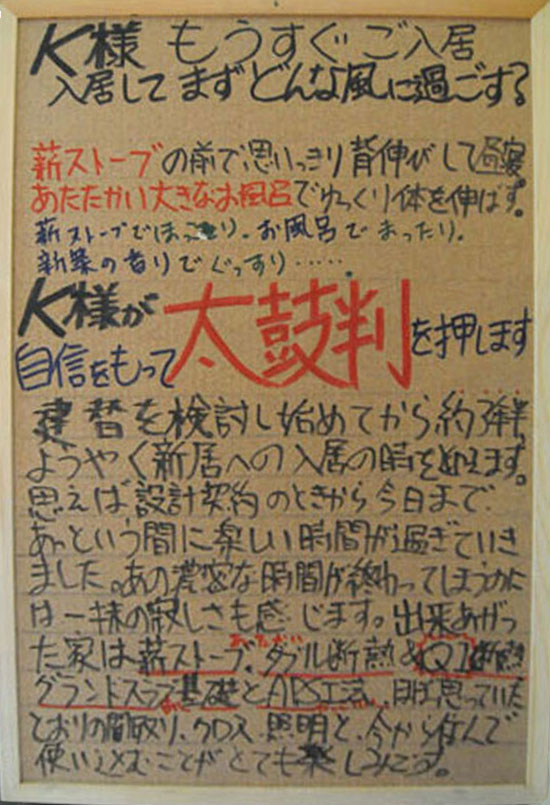 K様 もうすぐご入居
入居してまずどんな風に過ごす?
薪ストーブの前で思いっきり背伸びして昼寝。
あたたかい大きなお風呂でゆっくり体を伸ばす。
薪ストーブでほっこり、お風呂でまったり、
新築の香りでぐっすり・・・・・
K様が
自信をもって太鼓判を押します
建替を検討し始めてから約3年半
ようやく新居への入居の時を迎えます。
思えば設計契約のときから今日まで、
あっという間に楽しい時間が過ぎていき
ました。あの濃密な時間が終わってしまうのに
は一抹の寂しさも感じます。出来あがっ
あたたかい
た家は薪ストーブ、ダブル断熱&Q1断熱
グランドスラブ基礎とAPS工法、ほぼ思っていた
とおりの間取り、クロス、照明と、今から住んで
使い込むことがとても楽しみです。